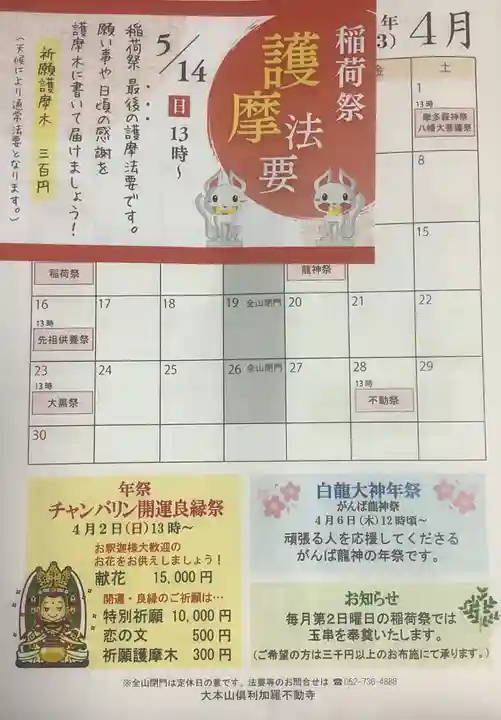 稲荷祭
護摩法要
5/14 日 13時～
稲荷祭 最後の護摩法要です。
願い事や日頃の感謝を
護摩木に書いて届けましょう！
祈願護摩木 三百円
（天候により通常法要となります。）
年
3) 4月
金 土
1
13時
摩多羅神祭
八幡大菩薩祭
8
15
稲荷祭
龍神祭
16 17 18 19 全山閉門 20 21 22
13時
先祖供養祭
23 24 25 26 全山閉門 27 28 29
13時 13時
大黒祭 不動祭
30
年祭
チャンバリン開運良縁祭
4月2日(日)13時～
お釈迦様大歓迎の
お花をお供えしましょう！
献花 15,000円
開運・良縁のご祈願は…
特別祈願 10,000円
恋の文 500円
祈願護摩木 300円
白龍大神年祭
がんば龍神祭
4月6日(木)12時頃～
頑張る人を応援してくださる
がんば龍神の年祭です。
お知らせ
毎月第2日曜日の稲荷祭では
玉串を奉奠いたします。
(ご希望の方は三千円以上のお布施にて承ります。)
※全山閉門は定休日の意です。法要等のお問合せは ☎052-736-4888
大本山倶利加羅不動寺